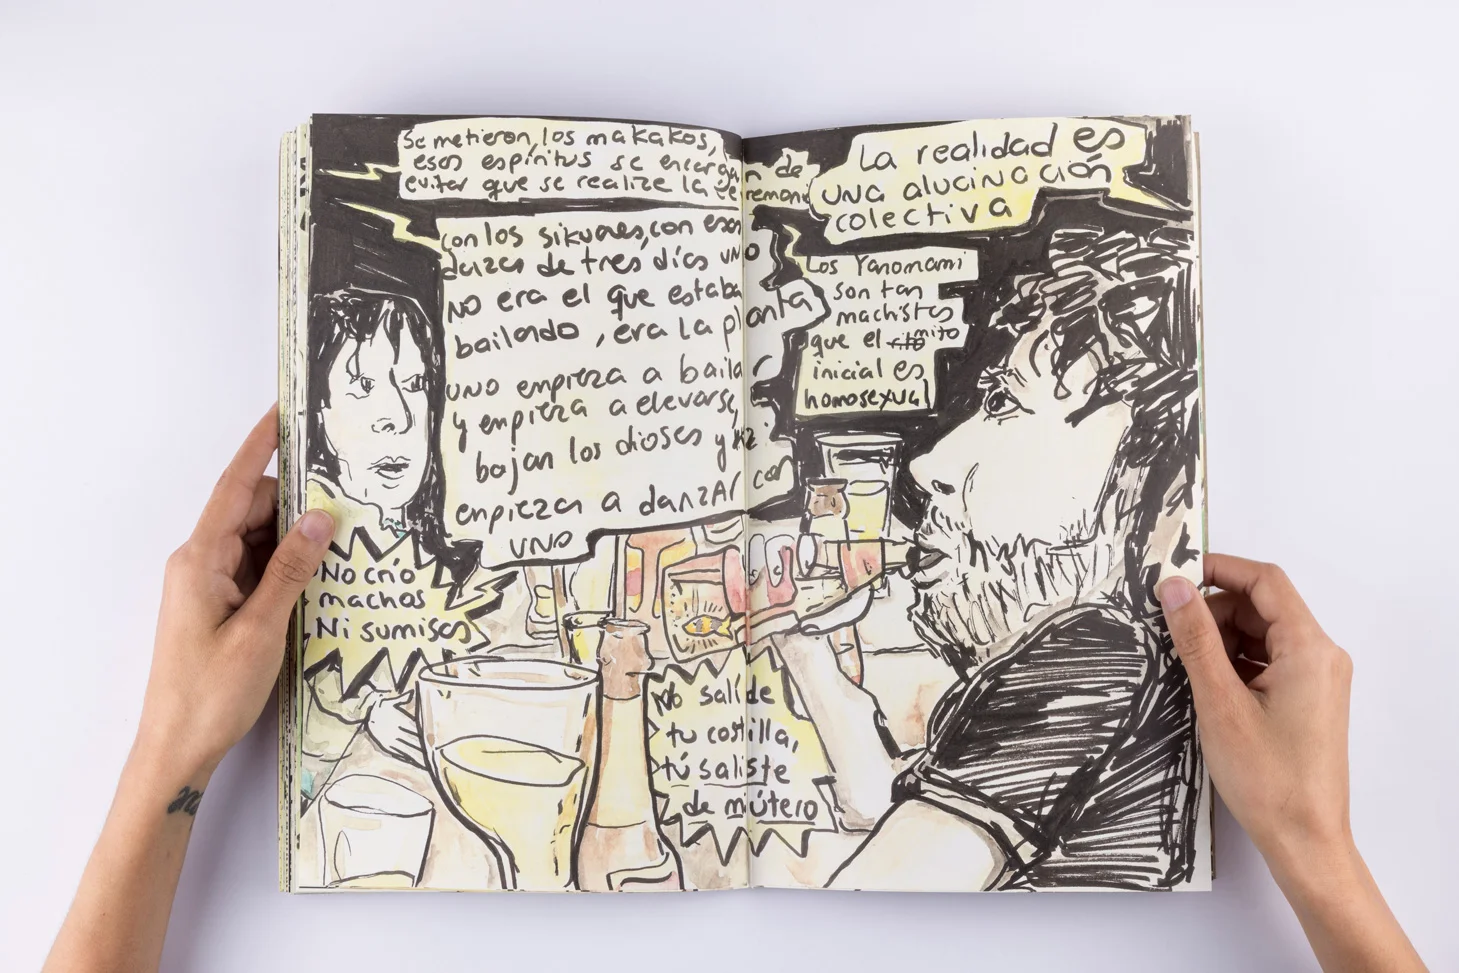 Se metieron, los makakos,
esos espíritus se encargan de
evitar que se realize la ceremonia
con los sikuares, con esas
danzas de tres días uno
no era el que estaba
bailando, era la planta
uno empieza a bailar
y empieza a elevarse,
bajan los dioses y
empiezan a danzar con
uno
La realidad es
una alucinación
colectiva
Los Yanomami
son tan
machistas
que el mito
inicial es
homosexual
No crío
machos
Ni sumisos
No salí de
tu costilla,
tú saliste
de mi útero